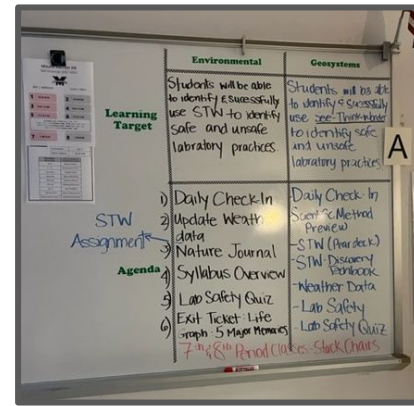 Environmental
Geosystems
Learning
Target
Students will be able
to identify & sucessfully
use STW to identify
safe and unsafe
labratory practices.
Students will be able
to identify & sucessfully
use See-Think-Wonder
to identify safe
and unsafe
labratory practices
A
STW
Assignment
Agenda
1) Daily Check-In
2) Update Weath
data
3) Nature Journal
4) Syllabus Overview
5) Lab Safety Quiz
6) Exit Ticket: Life
Graph: 5 Major Memories
-Daily Check-In
Scientific Method
Preview
-STW (Peardeck)
-STW-Discovery
Techbook
-Weather Data
-Lab Safety
-Lab Safety Quiz
7th & 8th Period Classes-Stack Chairs